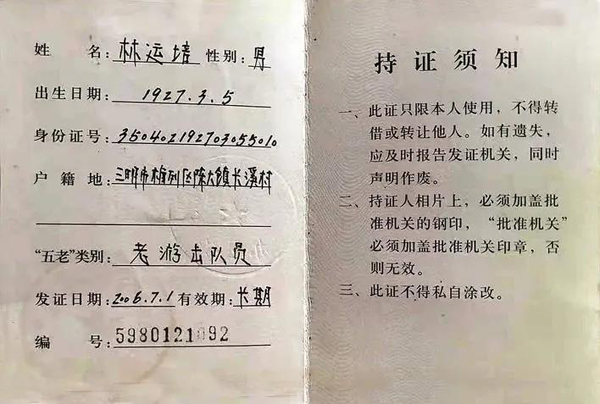 姓 名:林运培 性别:男
出生日期:1927.3.5
身份证号:350402192703055010
户籍地:三明市梅列区陈大镇长溪村
“五老”类别:老游击队员
发证日期:2006.7.1 有效期:长期
编 号:5980121092
持证须知
一、此证只限本人使用，不得转
借或转让他人。如有遗失，
应及时报告发证机关，同时
声明作废。
二、持证人相片上，必须加盖批
准机关的钢印，“批准机关”
必须加盖批准机关印章，否
则无效。
三、此证不得私自涂改。